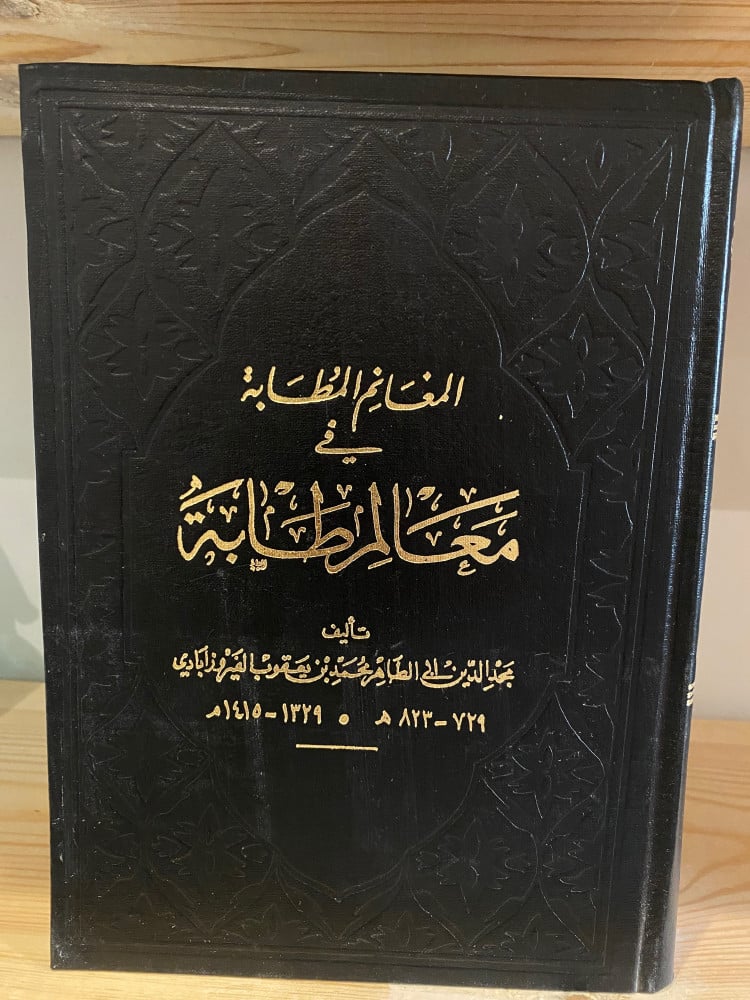 المغَانِم المُطَابَة
في
مَعَالِم طَابَةُ
تأليف
مجد الدّين أبي الطّاهر محمّد بن يعقوب الفيروزآبادي
٧٢٩ - ٨٢٣ هـ • ١٣٢٩ - ١٤١٥ م